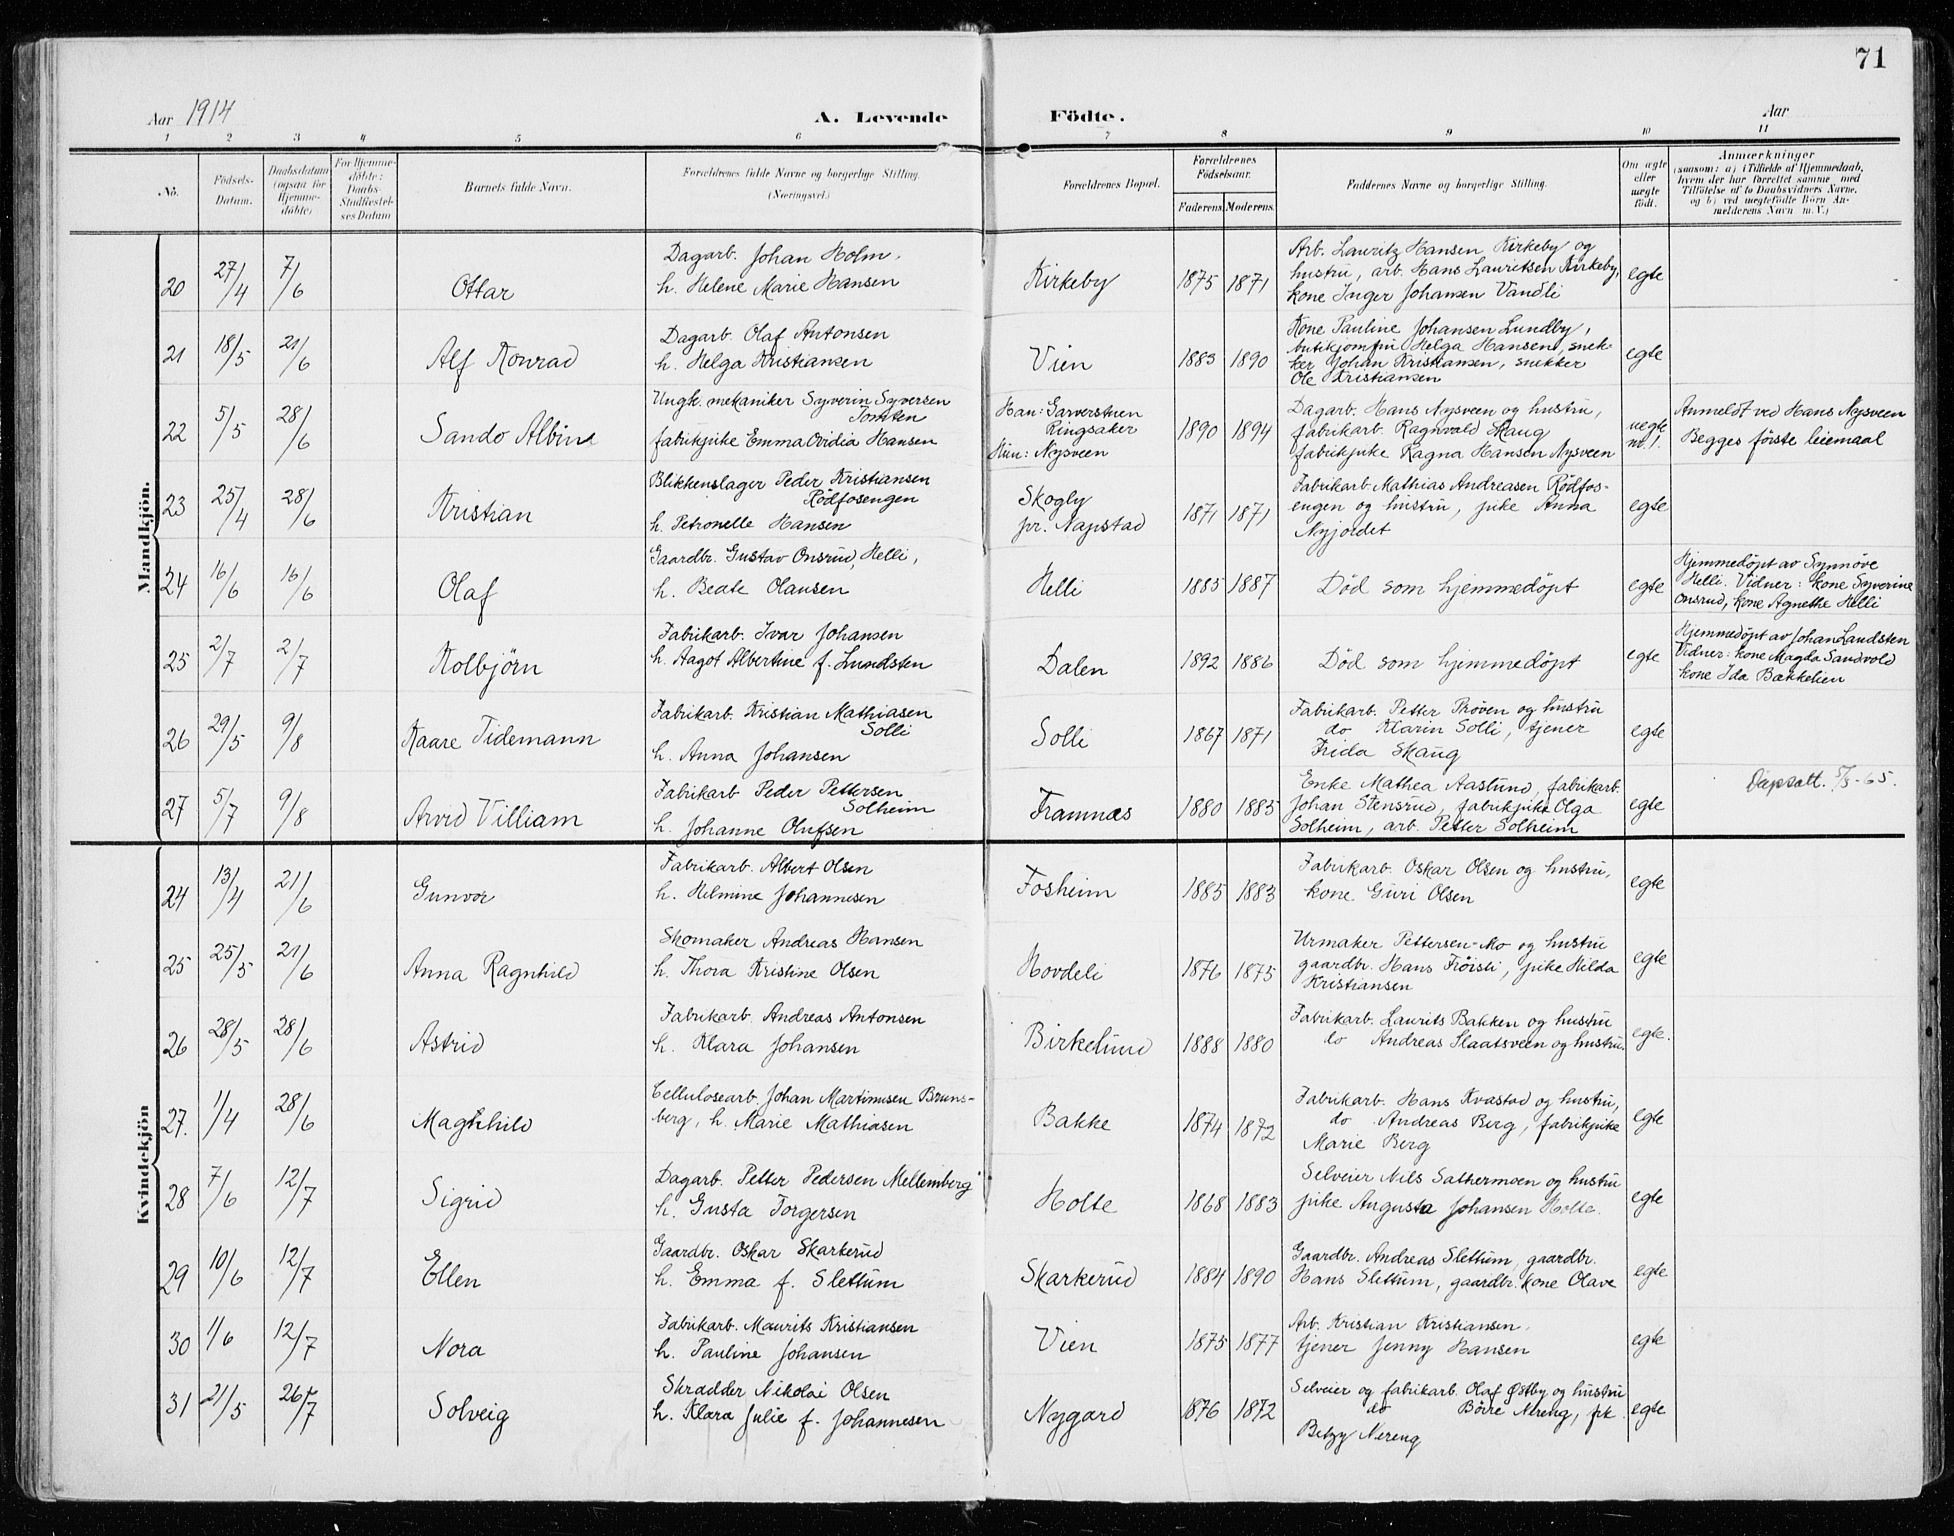 71
Aar 1914
A. Levende Födte.
Aar
1 2 3 4 5 6 7 8 9 10 11
No.
Födsels-Datum.
Daabsdatum (ogsaa for Hjemme-döbte)
For Hjemme-döbte: Daabs-Stadfæstel-ses Datum
Barnets fulde Navn.
Forældrenes fulde Navne og borgerlige Stilling. (Næringsvei.)
Forældrenes Bopæl.
Forældrenes Födselsaar.
Faderens. Moderens.
Faddernes Navne og borgerlige Stilling.
Om ægte eller uægte födt.
Anmærkninger
(saasom: a) i Tilfælde af Hjemmedaab, hvem der har forrettet samme med Tilföielse af to Daabsvidners Navne, og b) ved uægtefödte Börn An-melderens Navn m. V.)
Mandkjön.
20 27/4 7/6 Ottar
Dagarb. Johan Holm,
h. Helene Marie Hansen
Kirkeby 1875 1871
Arb. Lauritz Hansen Kirkeby og
hustru, arb. Hans Lauritsen Kirkeby,
kone Inger Johansen Vandli
egte
21 18/5 21/6 Alf Konrad
Dagarb. Olaf Antonsen
h. Helga Kristiansen
Vien 1883 1890
Kone Pauline Johansen Lundby,
butikjomfru Helga Hansen, snek-
ker Johan Kristiansen, snekker
Ole Kristiansen
egte
22 5/5 28/6 Sando Albin
Ungk. mekaniker Syverin Syversen
Tomten
fabrikpike Emma Ovidia Hansen
Han: Garverstuen
Ringsaker
Hun: Nysveen
1890 1894
Dagarb. Hans Nysveen og hustru,
fabrikarb. Ragnvald Skaug
fabrikpike Ragna Hansen Nysveen
uegte
nr. 1.
Anmeldt ved Hans Nysveen
Begges første leiemaal
23 25/4 28/6 Kristian
Blikkenslager Peder Kristiansen
Rödfosengen
h. Petronelle Hansen
Skogly
pr. Napstad
1871 1871
Fabrikarb. Mathias Andreasen Rödfos-
engen og hustru, pike Anna
Nyjordet
egte
24 16/6 16/6 Olaf
Gaardbr. Gustav Onsrud, Helli,
h. Beate Olausen
Helli 1885 1887
Död som hjemmedöpt
egte
Hjemmedöpt av Synnöve
Helli. Vidner: kone Syverine
Onsrud, kone Agnethe Helli
25 2/7 2/7 Kolbjörn
Fabrikarb. Ivar Johansen
h. Aagot Albertine f. Lundsten
Dalen 1892 1886
Död som hjemmedöpt
egte
Hjemmedöpt av Johan Lundsten
Vidner: kone Magda Sandvold
kone Ida Bækkelien
26 29/5 9/8 Kaare Tidemann
Fabrikarb. Kristian Mathiasen
Solli
h. Anna Johansen
Solli 1867 1871
Fabrikarb. Petter Pröven og hustru
do Karin Solli, tjener
Frida Skaug
egte
27 5/7 9/8 Arvid Villiam
Fabrikarb Peder Pettersen
Solheim
h. Johanne Olufsen
Framnæs 1880 1885
Enke Mathea Aaslund, fabrikarb.
Johan Stensrud, fabrikpike Olga
Solheim, arb. Petter Solheim
egte
Dåpsatt. 5/3-65.
Kvindekjön
24 13/4 21/6 Gunvor
Fabrikarb. Albert Olsen
h. Helmine Johannesen
Fosheim 1885 1883
Fabrikarb. Oskar Olsen og hustru,
kone Guri Olsen
egte
25 25/5 21/6 Anna Ragnhild
Skomaker Andreas Hansen
h. Thora Kristine Olsen
Hovdeli 1876 1875
Urmaker Pettersen-Mo og hustru
gaardbr. Hans Fröisli, pike Hilda
Kristiansen
egte
26 28/5 28/6 Astrid
Fabrikarb. Andreas Antonsen
h. Klara Johansen
Birkelund 1888 1880
Fabrikarb. Laurits Bakken og hustru
do Andreas Slaatsveen og hustru.
egte.
27. 1/4 28/6 Magnhild
Cellulosearb. Johan Martinusen Bruns-
berg, h. Marie Mathiasen
Bakke 1874 1872
Fabrikarb. Hans Kvastad og hustru,
do Andreas Berg, fabrikpike
Marie Berg
egte
28 7/6 12/7 Sigrid
Dagarb. Petter Pedersen Mellemberg
h. Gusta Torgersen
Holte 1868 1883
Selveier Nils Sathermoen og hustru
pike Augusta Johansen Holte.
egte
29 10/6 12/7 Ellen
Gaardbr. Oskar Skarkerud
h. Emma f. Slettum
Skarkerud 1884 1890
Gaardbr. Andreas Slettum, gaardbr.
Hans Slettum, gaardbr. kone Olave
egte
30 1/6 12/7 Nora
Fabrikarb. Maurits Kristiansen
h. Pauline Johansen
Vien 1875 1877
Arb. Kristian Kristiansen.
tjener Jenny Hansen
egte
31 21/5 26/7 Solveig
Skrædder Nikolai Olsen
h. Klara Julie f. Johannesen
Nygard 1876 1872
Selveier og fabrikarb. Olaf Østby og hustru
do Börre Nereng, pk.
Betzy Nereng
egte